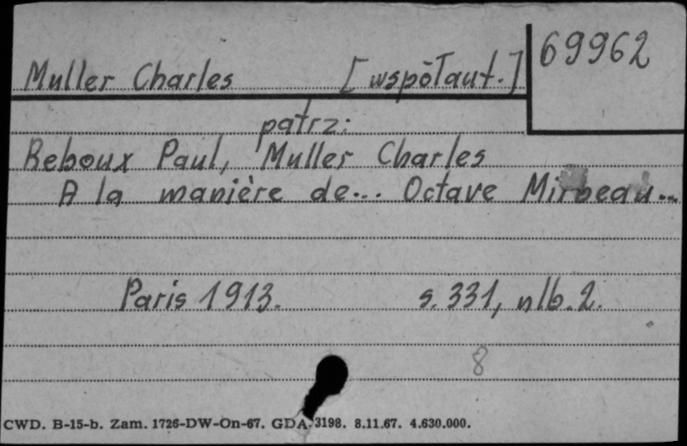 69962
Muller Charles [współaut.]
patrz:
Reboux Paul, Muller Charles
A la manière de... Octave Mirbeau...
Paris 1913. s. 331, nlb. 2.
8
CWD. B-15-b. Zam. 1726-DW-On-67. GDA-3198. 8.11.67. 4.630.000.